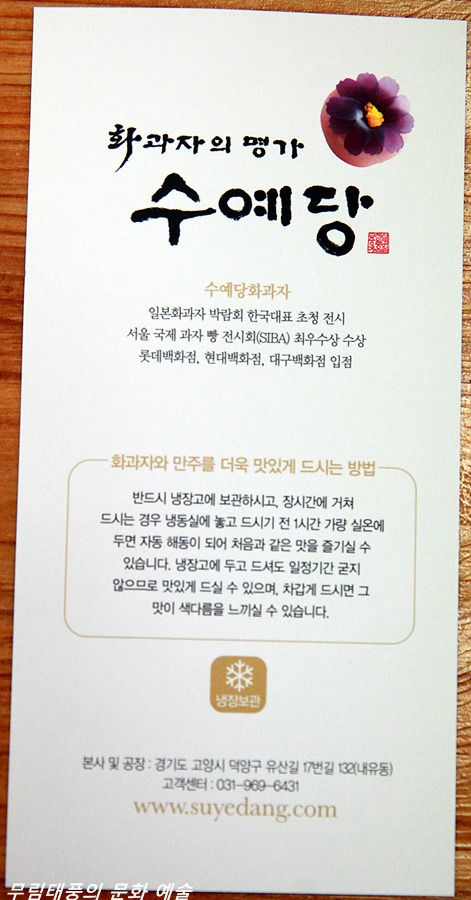 화과자의 명가
수예당
수예당화과자
일본화과자 박람회 한국대표 초청 전시
서울 국제 과자 빵 전시회(SIBA) 최우수상 수상
롯데백화점, 현대백화점, 대구백화점 입점
화과자와 만주를 더욱 맛있게 드시는 방법
반드시 냉장고에 보관하시고, 장시간에 거쳐
드시는 경우 냉동실에 놓고 드시기 전 1시간 가량 실온에
두면 자동 해동이 되어 처음과 같은 맛을 즐기실 수
있습니다. 냉장고에 두고 드셔도 일정기간 굳지
않으므로 맛있게 드실 수 있으며, 차갑게 드시면 그
맛이 색다름을 느끼실 수 있습니다.
냉장보관
본사 및 공장 : 경기도 고양시 덕양구 유산길 17번길 132(내유동)
고객센터 : 031-969-6431
www.suyedang.com
무림태풍의 문화 예술